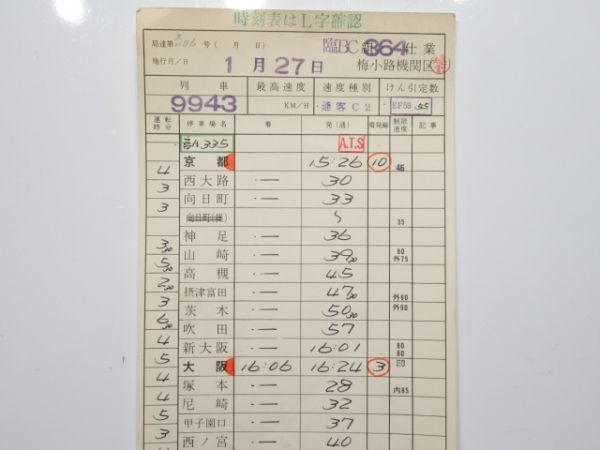 時刻表はL字確認
局達第 206 号( 月 日) 臨BC 組 364 仕業
施行月/日 1月27日 梅小路機関区
列車 最高速度 速度種別 けん引定数
9943 KM/H 通客C2 EF58 55
運転時分 停車場名 着 発(通) 着発線 制限速度 記事
335 A.T.S
京都 15:26 10
4 西大路 ・― 30
3 向日町 ・― 33
向日町(操) 〃 35
3 神足 ・― 36
3 30 山崎 ・― 39 30 80 外75
5 30 高槻 ・― 45
2 30 摂津富田 ・― 47 30 外90
3 茨木 ・― 50 30 外90
6 30 吹田 ・― 57
4 新大阪 ・― 16:01 80 80
5 大阪 16:06 16:24 3
4 塚本 ・― 28 内85
4 尼崎 ・― 32
5 甲子園口 ・― 37
3 西ノ宮 ・― 40